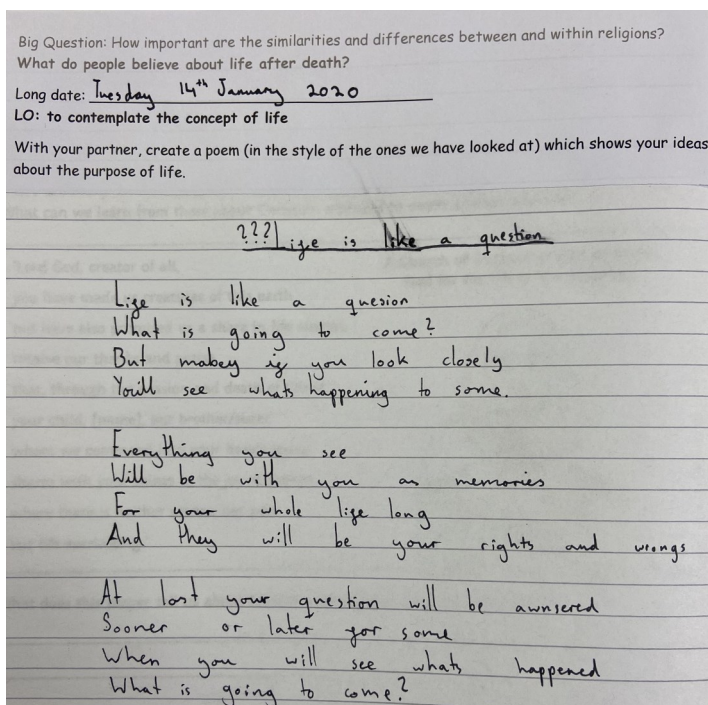 Big Question: How important are the similarities and differences between and within religions?
What do people believe about life after death?
Long date: Tuesday 14th January 2020
LO: to contemplate the concept of life
With your partner, create a poem (in the style of the ones we have looked at) which shows your ideas
about the purpose of life.
???Life is like a question
Life is like a quesion
What is going to come?
But mabey if you look closely
You'll see whats happening to some.
Everything you see
Will be with you as memories
For your whole life long
And they will be your rights and wrongs
At last your question will be awnsered
Sooner or later for some
When you will see whats happened
What is going to come?